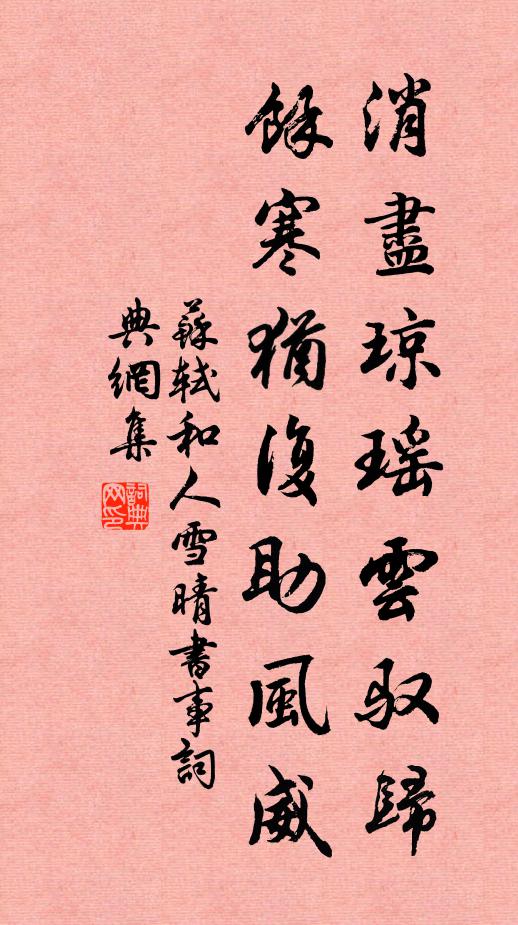 消盡琼瑶雲驭歸
餘寒猶復助風威
蘇轼和人雪晴書事詞
典網集
詞典
网印